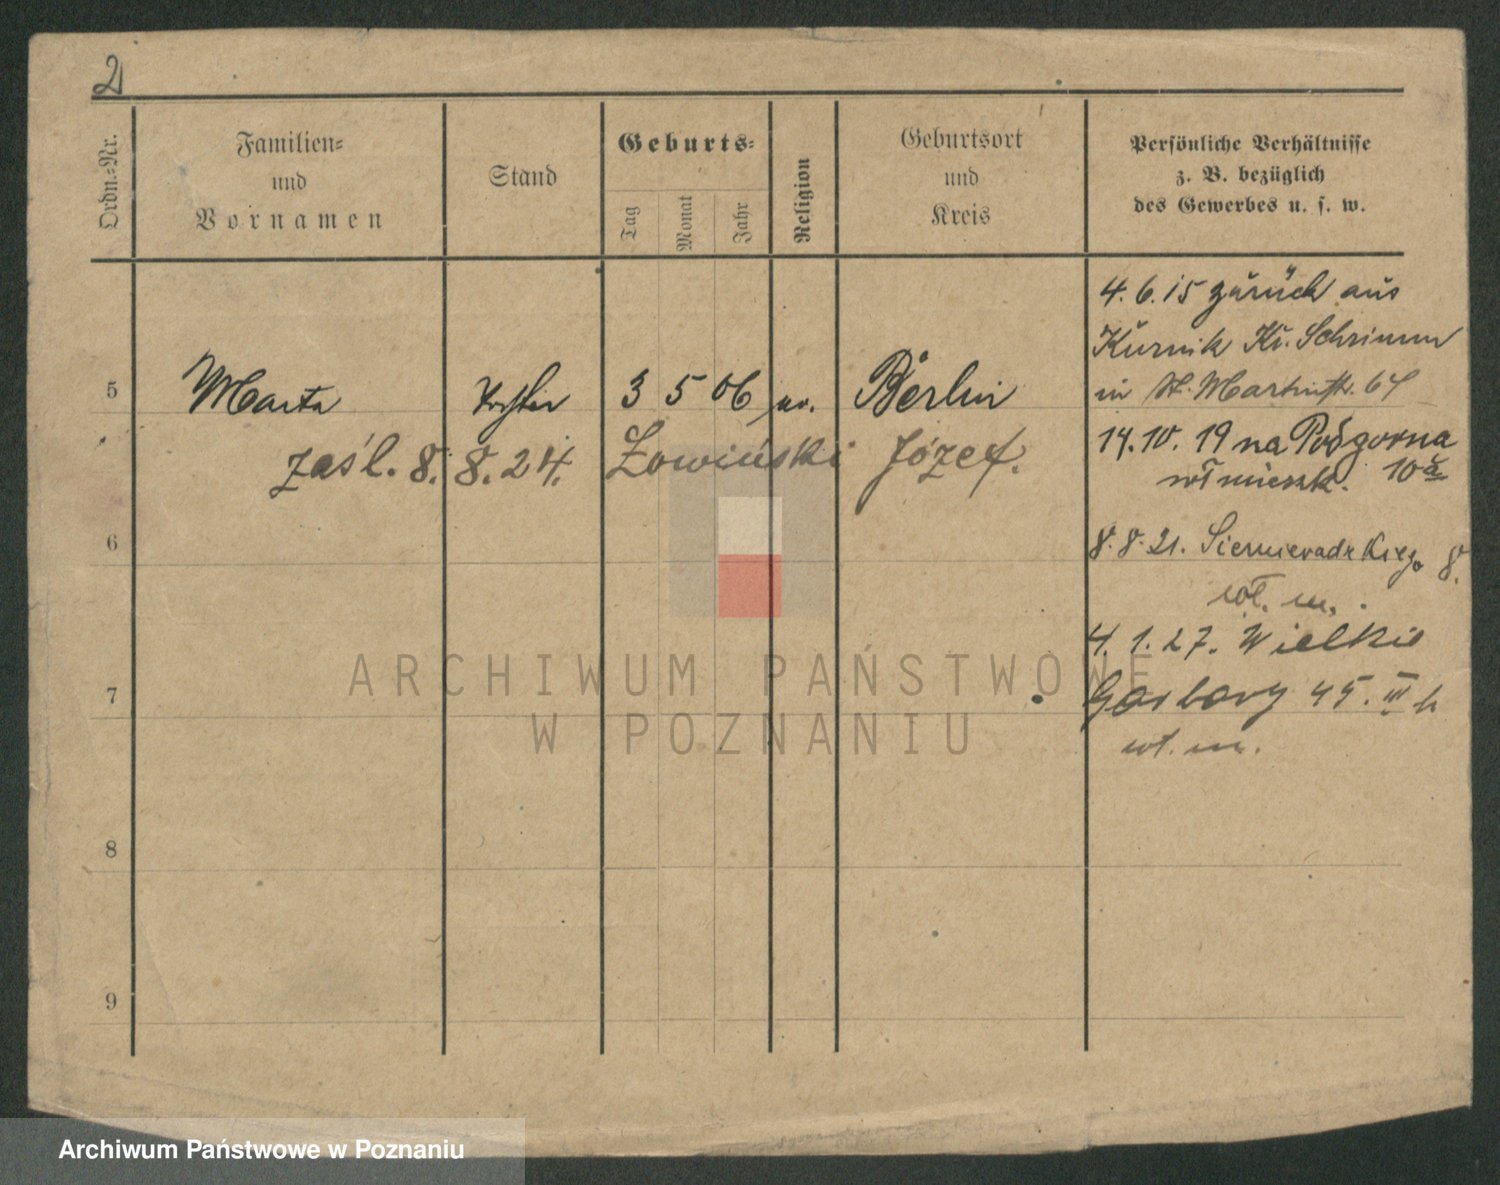 2
Ordn.-Nr.
Familien-
und
Vornamen
Stand
Geburts-
Tag
Monat
Jahr
Religion
Geburtsort
und
Kreis
Persönliche Verhältnisse
z. B. bezüglich
des Gewerbes u. s. w.
4. 6. 15 zurück aus
Kurnik Kr. Schrimm
in St. Martinstr. 64
5 Marta Tochter 3 5 06 Berlin
14. 10. 19 na Podgorna
wł mieszk. 10a
zaśl. 8. 8. 24. Łowiński Józef.
6
8. 8. 21. Siemieradzkiego 8.
wł. m.
4. 1. 27. Wielkie
7
Garbary 45. III
wł. m.
8
9
ARCHIWUM PAŃSTWOWE
W POZNANIU
Archiwum Państwowe w Poznaniu